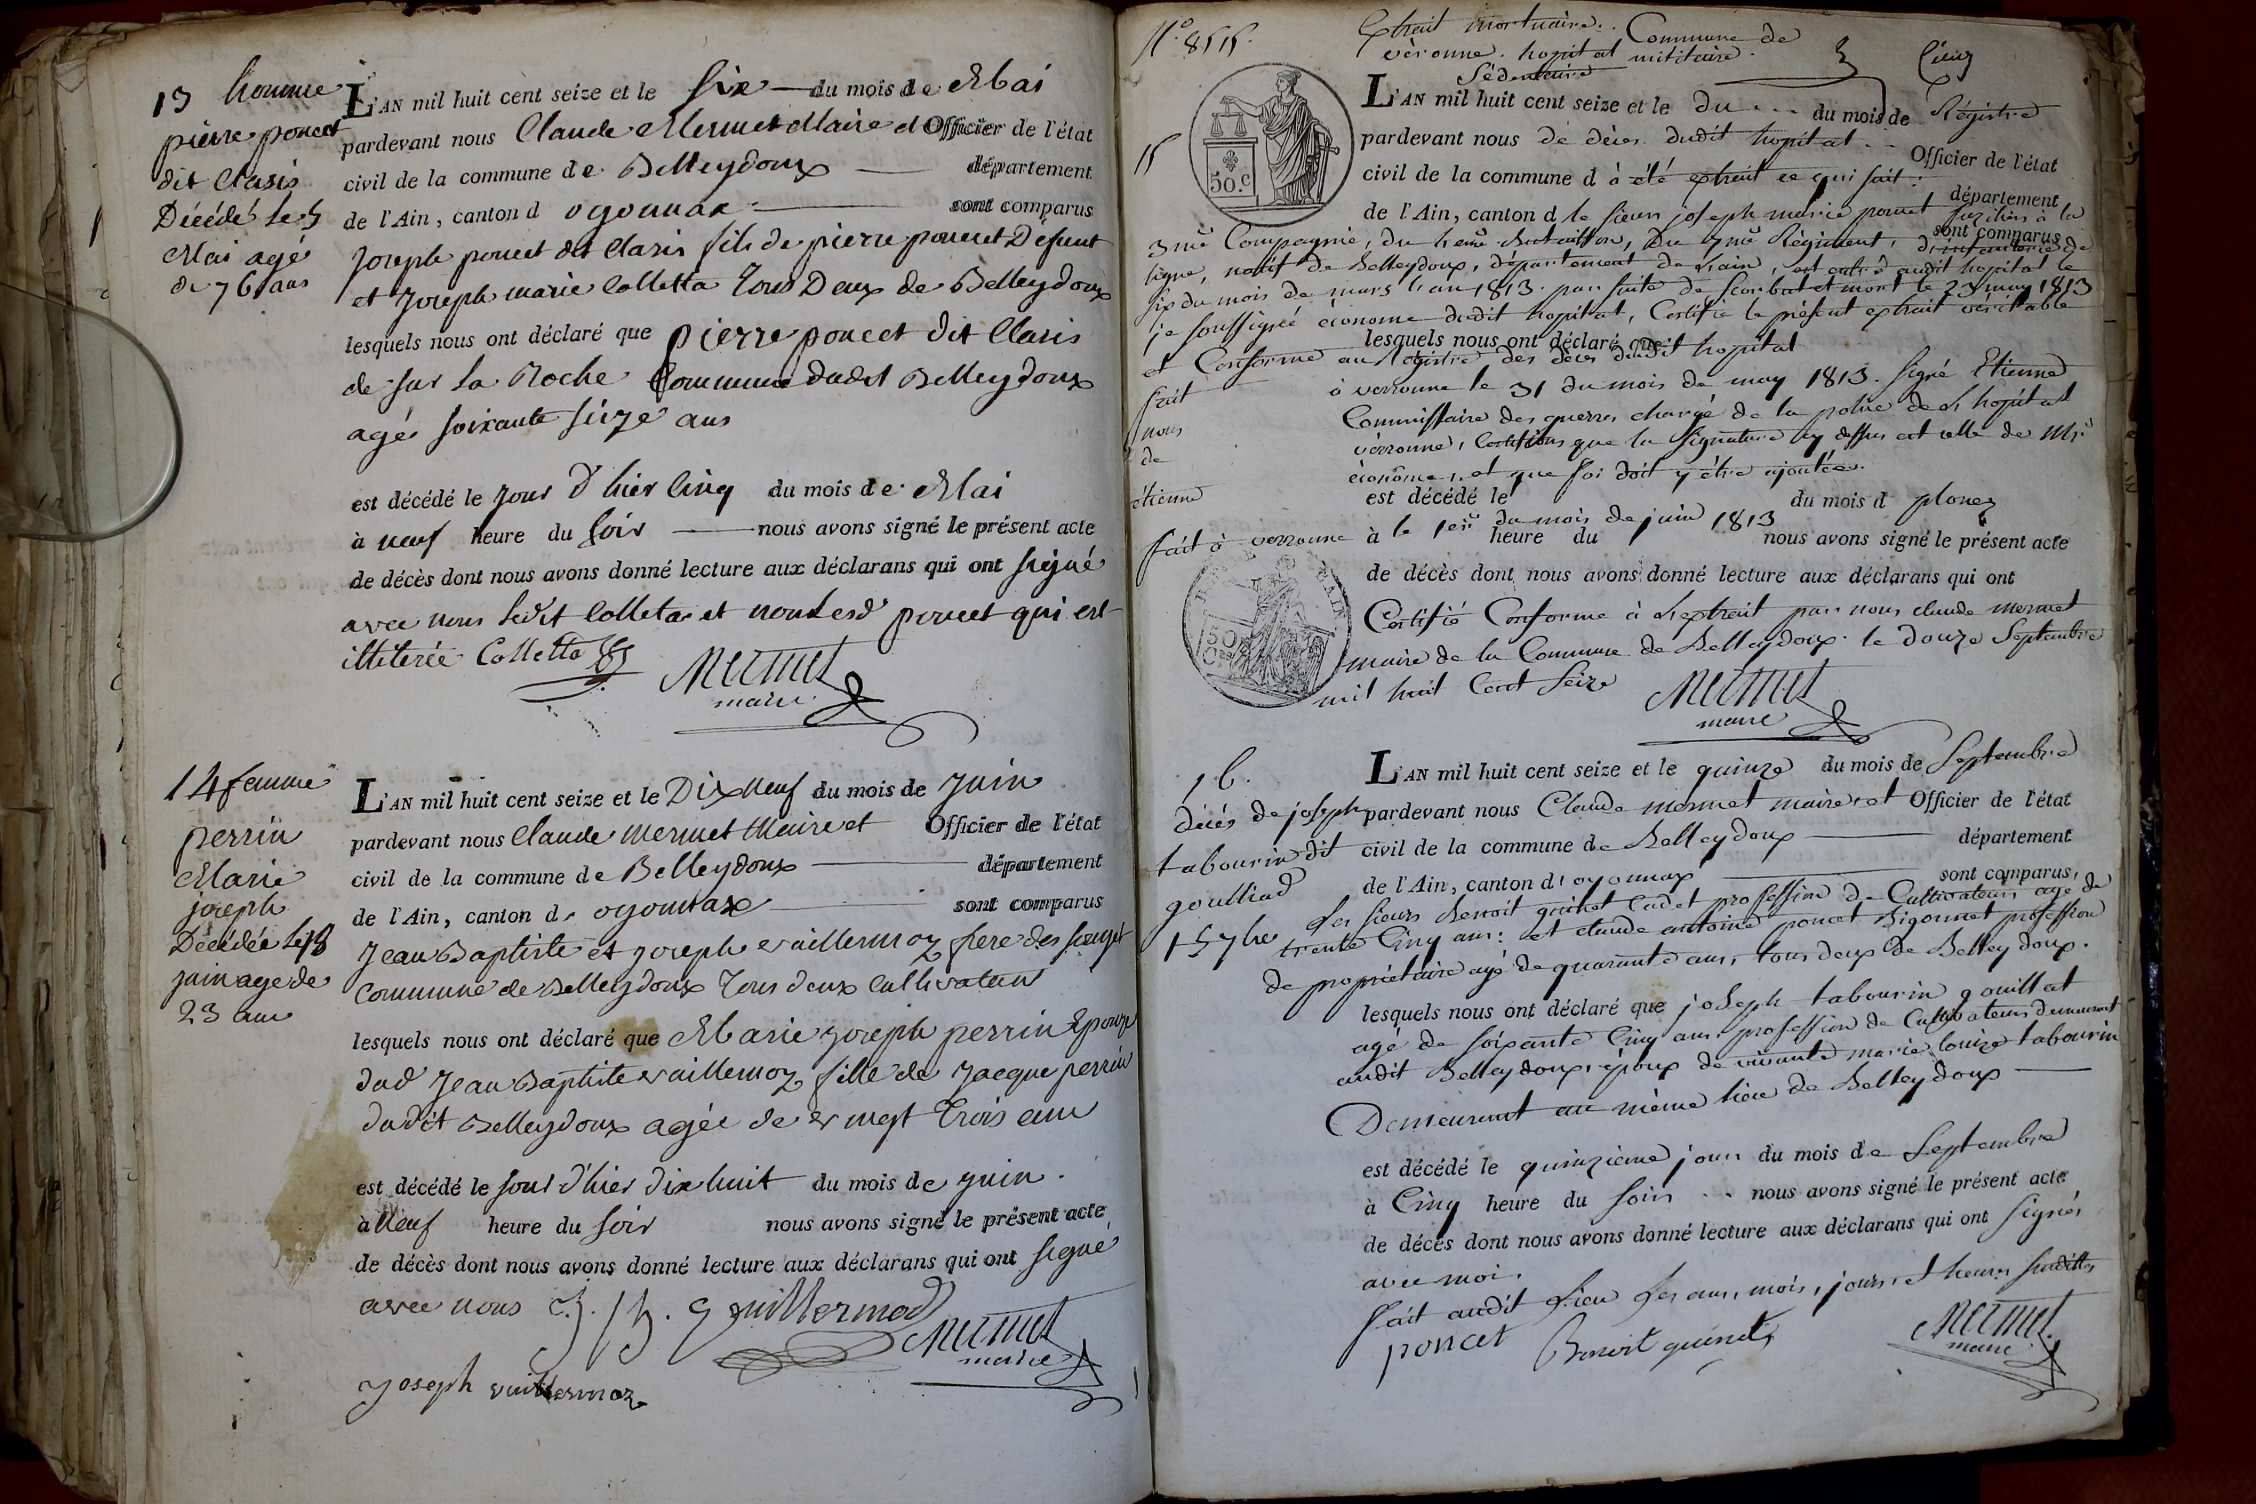 13 homme
pierre poncet
dit Clasis
Décédé le 5
Mai agé
de 76 ans
L'AN mil huit cent seize et le Six du mois de Mai
pardevant nous Claude Mermet Maire et Officier de l'état
civil de la commune de Belleydoux département
de l'Ain, canton d oyonnax sont comparus
Joseph poncet dit Claris fils de pierre poncet Défunt
et Joseph marie Colletta Tous Deux de Belleydoux
lesquels nous ont déclaré que pierre poncet dit Claris
de sur La Roche Commune dudit Belleydoux
agé soixante seize ans
est décédé le Jour d'hier Cinq du mois de Mai
à neuf heure du soir nous avons signé le présent acte
de décès dont nous avons donné lecture aux déclarans qui ont signé
avec nous ledit Colleta et non led poncet qui est
illiterée Colletta
Mermet
maire
14 femme
perrin
Marie
joseph
Décédée le 18
juin age de
23 ans
L'AN mil huit cent seize et le Dix neuf du mois de Juin
pardevant nous Claude Mermet Maire et Officier de l'état
civil de la commune de Belleydoux département
de l'Ain, canton d. oyonnax sont comparus
Jean Baptiste et Joseph vaillermoz frere des
commune de Belleydoux Tous deux Cultivateur
lesquels nous ont déclaré que Marie Joseph perrin Epouse
dud Jean Baptiste vaillermoz fille de Jacque perrin
dudit Belleydoux agée de vingt Trois ans
est décédé le jour d'hier dix huit du mois de juin.
à Neuf heure du soir nous avons signé le présent acte
de décès dont nous avons donné lecture aux déclarans qui ont signé
avec nous
Mermet
maire
Joseph vuillermoz
N.o 8515.
Extrait mortuaire. Commune de
vèronne. hopital militaire.
Sédentaire
15
50.c
L'AN mil huit cent seize et le du du mois de Régistre
pardevant nous de décès dudit hopital Officier de l'état
civil de la commune d à été extrait ce qui suit: département
de l'Ain, canton d le sieur joseph marie poncet fuzilier à la sont comparus
3me Compagnie, du Bataillon, Du Régiment, d'infanterie de
ligne, natif de Belleydoux, département de Lain, est entré audit hopital le
six du mois de mars l'an 1813. par suite de Scorbut et mort le 23 may 1813
je soussigné économe dudit hopital, Certifie le présent extrait véritable
lesquels nous ont déclaré que
et Conforme au Registre des décès dudit hopital
fait à verronne le 31 du mois de may 1813. signé Etienne
nous Commissaire des guerres chargé de la police de L'hopital
de vèrronne, Certifions que la signature cy dessus est celle de Mr
étienne économe, et que foi doit y être ajoutée.
est décédé le du mois d
fait à verronne à le 1er du mois de juin 1813
heure du nous avons signé le présent acte
de décès dont nous avons donné lecture aux déclarans qui ont
Certifié Conforme à L'extrait par nous claude mermet
maire de la Commune de Belleydoux le douze Septembre
mil huit Cent Seize
Mermet
maire
16.
décés de joseph
tabourin dit
goulliad
15 7bre
L'AN mil huit cent seize et le quinze du mois de Septembre
pardevant nous Claude mermet maire, et Officier de l'état
civil de la commune de Belleydoux département
de l'Ain, canton d'oyonnax sont comparus,
Les sieurs Benoit guinet Cadet profession de Cultivateur agé de
trente Cinq ans: et claude antoine poncet Bigonnet profession
de propriétaire agé de quarante ans, tous deux de Belleydoux.
lesquels nous ont déclaré que joseph tabourin gouillat
agé de soixante Cinq ans, profession de Cultivateur demeurant
audit Belleydoux, époux de vivante marie louize tabourin
Demeurant au même lieu de Belleydoux
est décédé le quinzieme jour du mois de Septembre
à Cinq heure du soir nous avons signé le présent acte
de décès dont nous avons donné lecture aux déclarans qui ont signés
avec moi.
Fait audit Lieu Les ans, mois, jours, et heures susdittes
poncet Benoit guinet
Mermet
maire